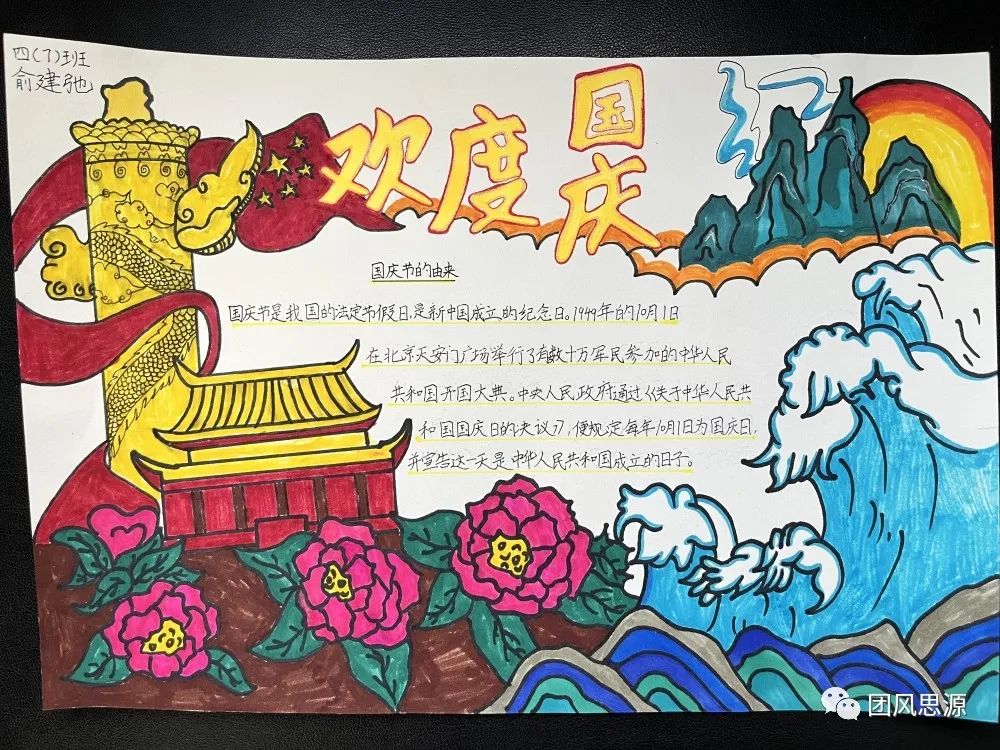 四(7)班
俞建弛
欢度国庆
国庆节的由来
国庆节是我国的法定节假日,是新中国成立的纪念日。1949年的10月1日
在北京天安门广场举行了有数十万军民参加的中华人民
共和国开国大典。中央人民政府通过《关于中华人民共
和国国庆日的决议》,便规定每年10月1日为国庆日,
并宣告这一天是中华人民共和国成立的日子。
团风思源